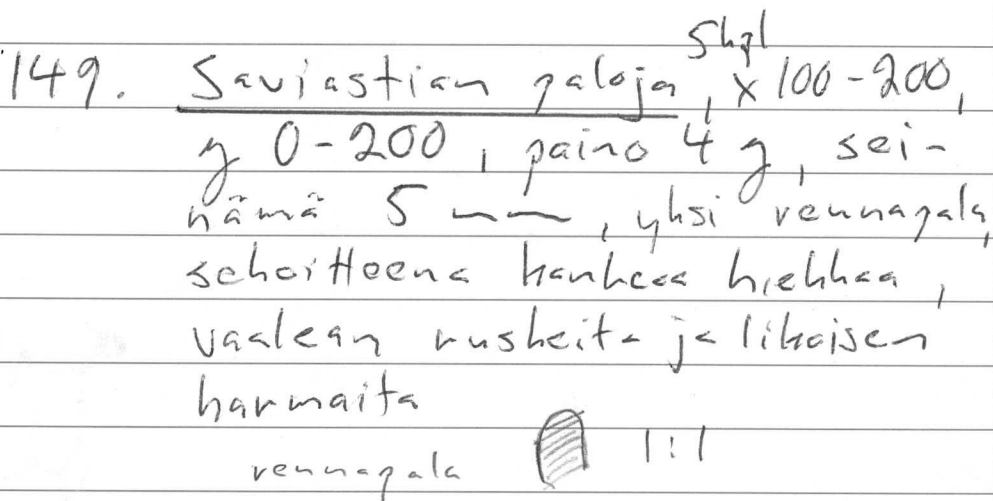 149. Saviastian paloja, 5kpl x 100-200,
y 0-200, paino 4 g, sei-
nämä 5 mm, yksi reunapala,
sekoitteena karkeaa hiekkaa,
vaalean ruskeita ja likaisen
harmaita
reunapala 1:1